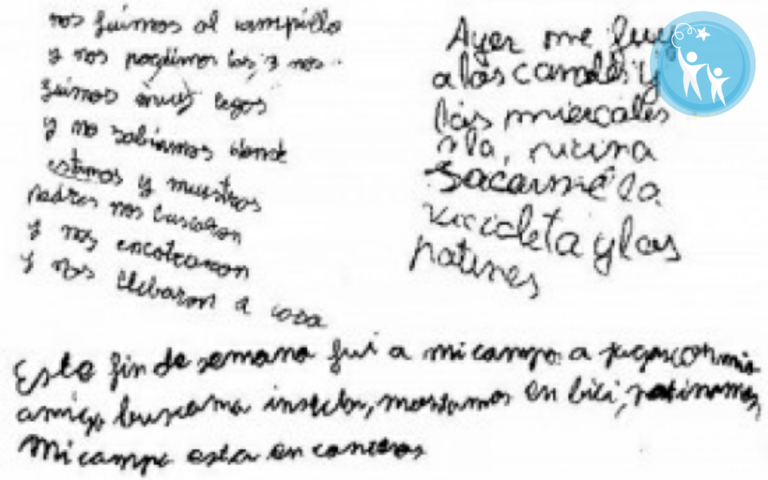 nos fuimos al campillo
y nos perdimos los 3 nos
fuimos muy legos
y no sabiamos donde
estamos y nuestros
padres nos buscaron
y nos encotraron
y nos llebaron a casa
Ayer me fuy
a los y
las miercales
a la,
sacarme la
vicicleta y las
patines
Este fin de semana fui a mi campo a jugar con mis
amigo, montamos en bici, patinamos,
Mi campo esta en